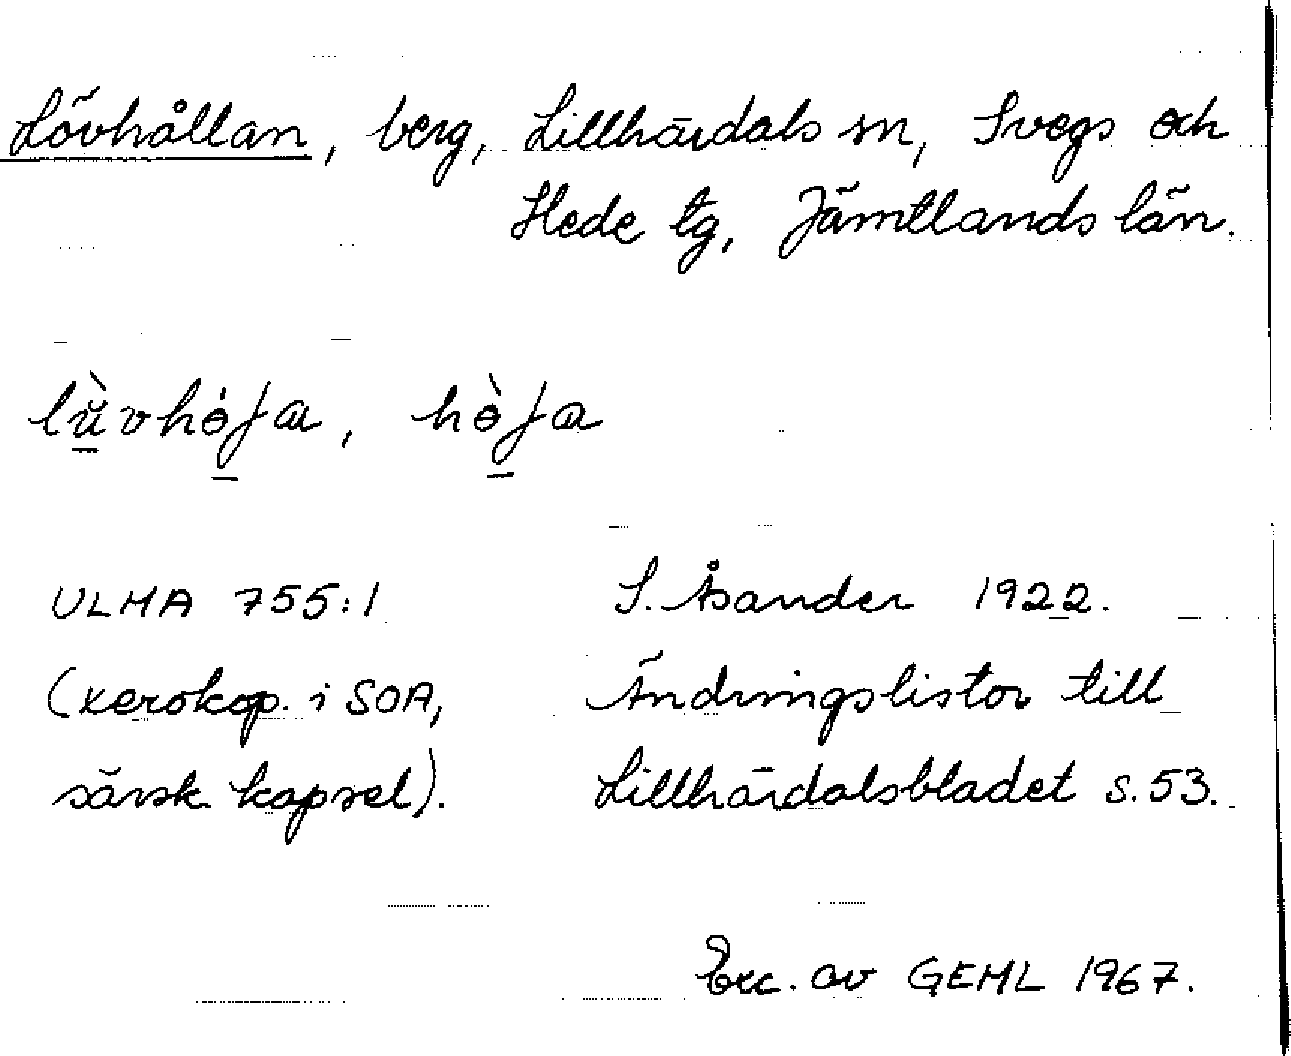 Lövhållan, berg, Lillhärdals sn, Svegs och
Hede tg, Jämtlands län.
ULMA 755:1 S. Åsander 1922.
(xerokop. i SOA, Ändringslistor till
särsk. kapsel). Lillhärdalsbladet s. 53.
Exc. av GEHL 1967.